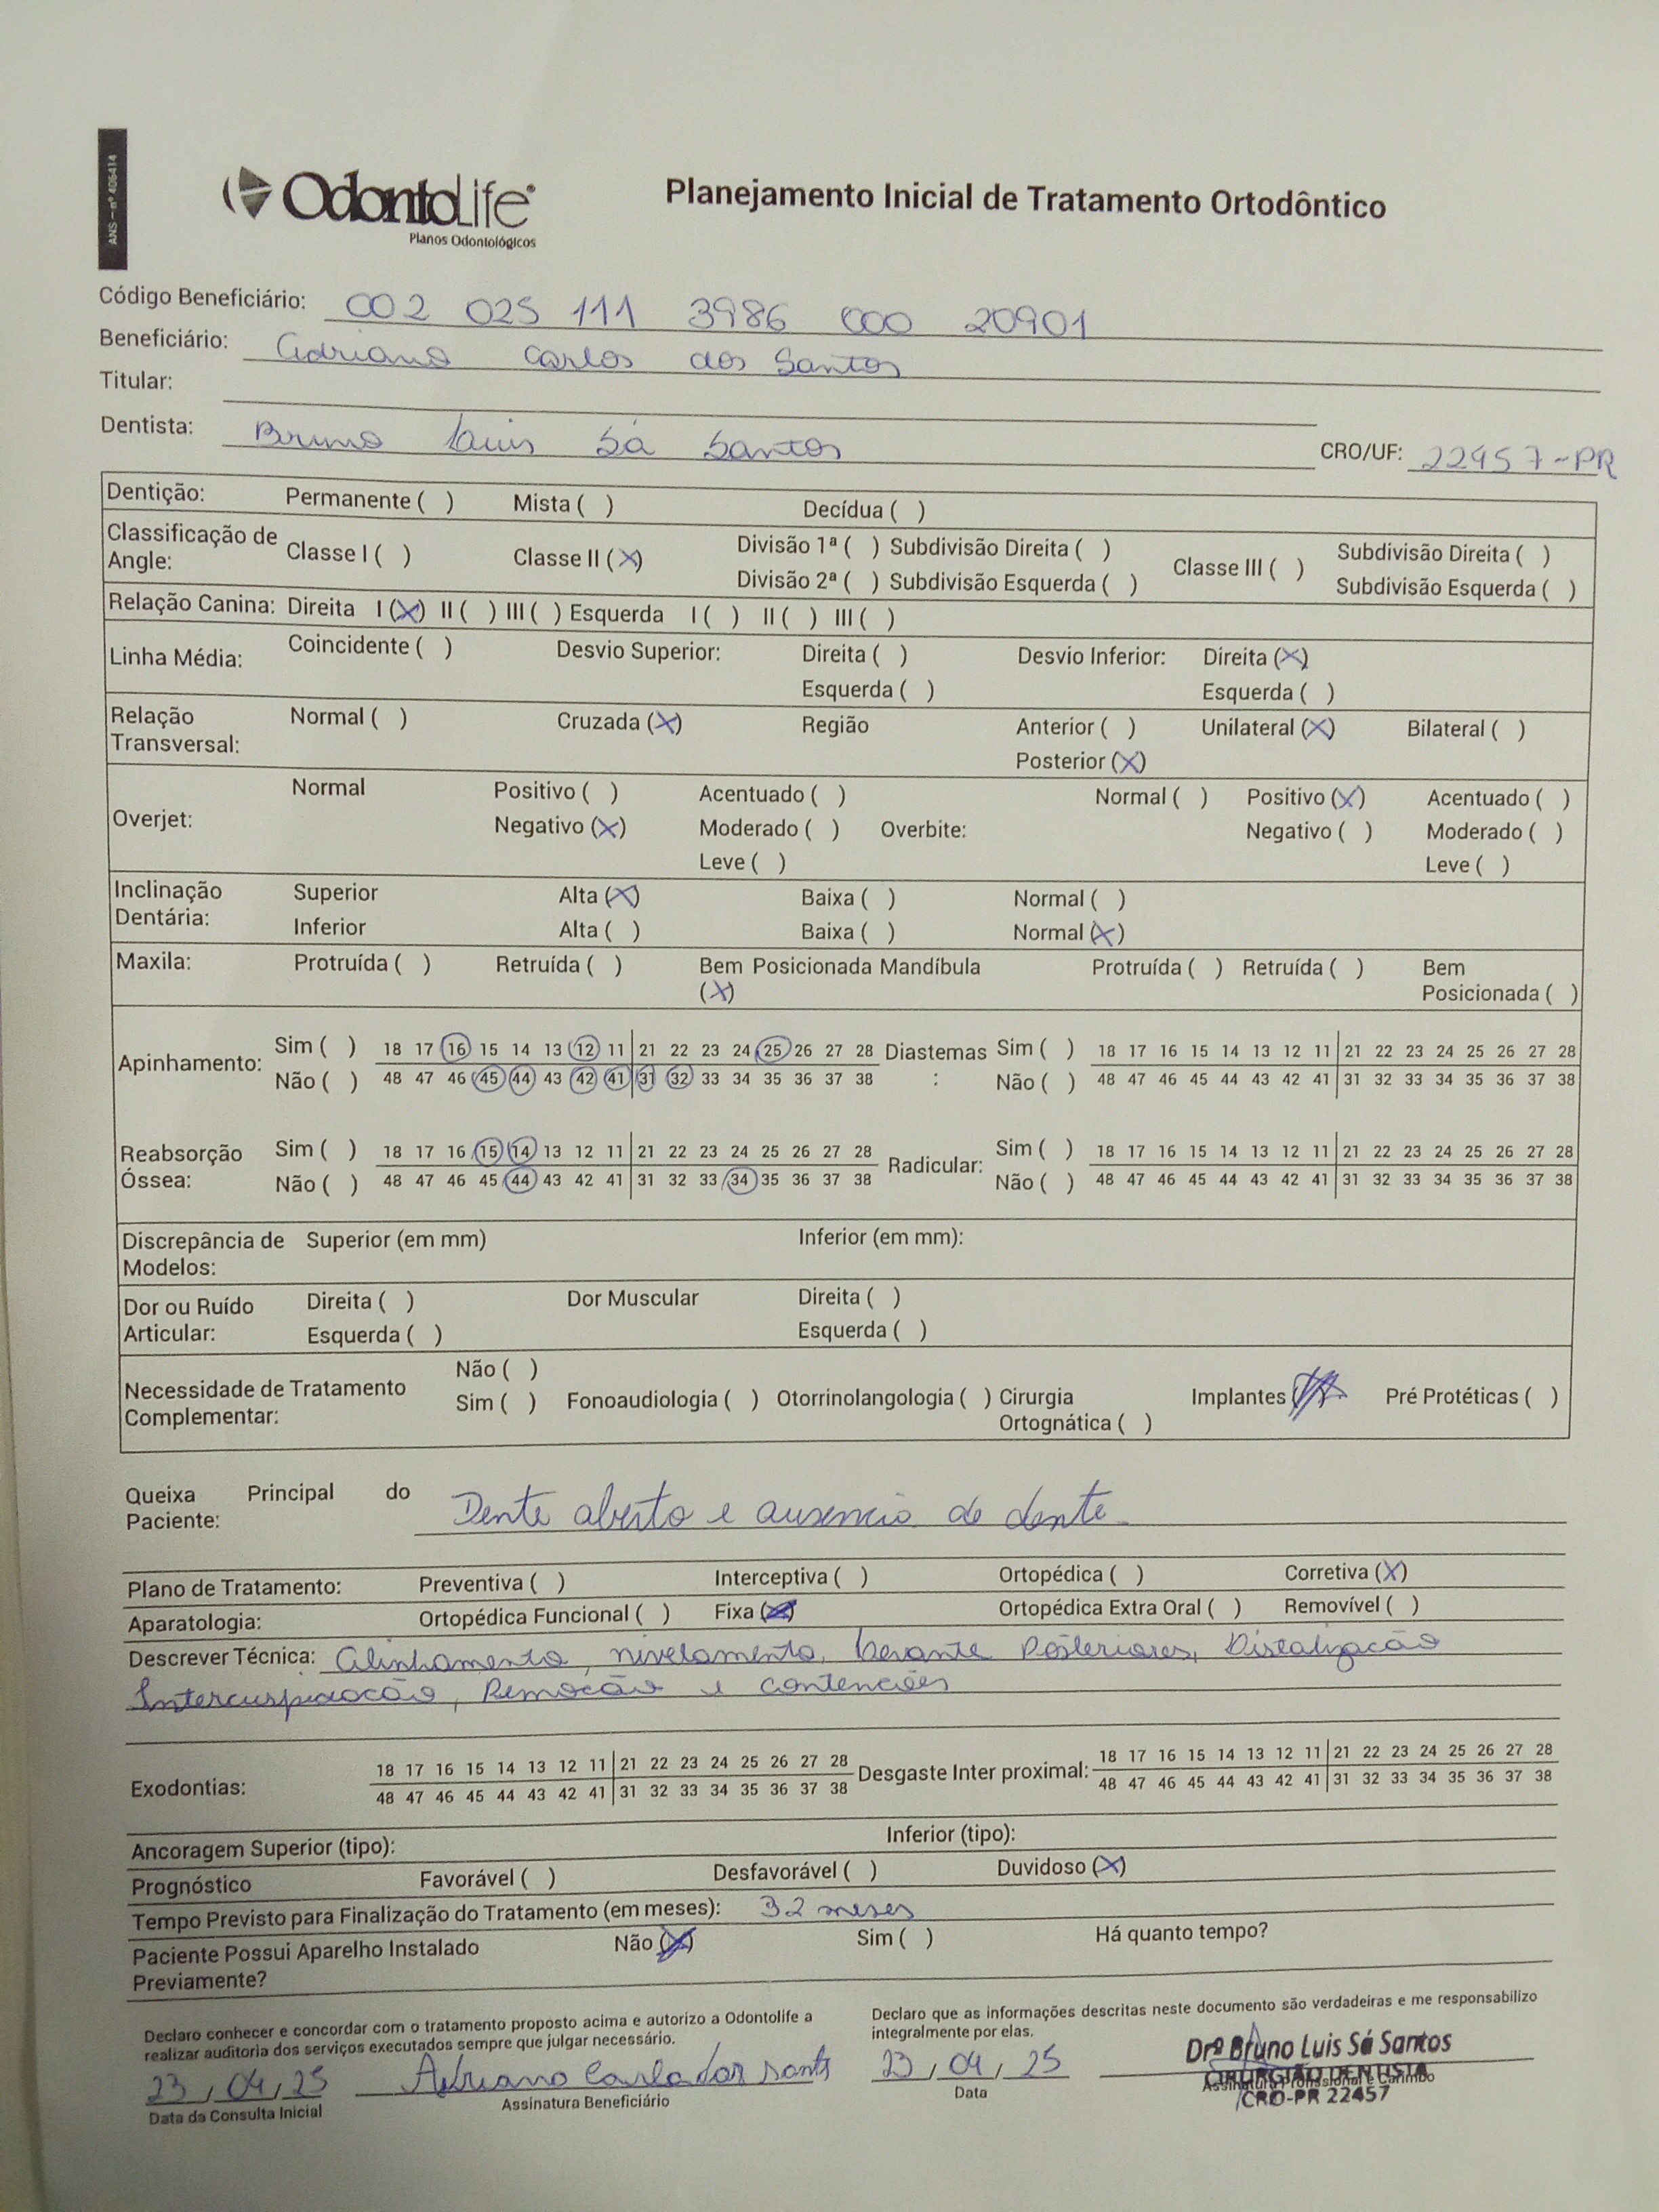 ANS – nº 406414
OdontoLife®
Planos Odontológicos
Planejamento Inicial de Tratamento Ortodôntico
Código Beneficiário: 002 025 111 3986 000 20901
Beneficiário: Adriano Carlos dos Santos
Titular:
Dentista: Bruno Luis Sá Santos CRO/UF: 22457-PR
Dentição: Permanente ( ) Mista ( ) Decídua ( )
Classificação de Angle: Classe I ( ) Classe II (X) Divisão 1ª ( ) Subdivisão Direita ( ) Classe III ( ) Subdivisão Direita ( )
Divisão 2ª ( ) Subdivisão Esquerda ( ) Subdivisão Esquerda ( )
Relação Canina: Direita I (X) II ( ) III ( ) Esquerda I ( ) II ( ) III ( )
Linha Média: Coincidente ( ) Desvio Superior: Direita ( ) Desvio Inferior: Direita (X)
Esquerda ( ) Esquerda ( )
Relação Transversal: Normal ( ) Cruzada (X) Região Anterior ( ) Unilateral (X) Bilateral ( )
Posterior (X)
Overjet: Normal Positivo ( ) Acentuado ( ) Overbite: Normal ( ) Positivo (X) Acentuado ( )
Negativo (X) Moderado ( ) Negativo ( ) Moderado ( )
Leve ( ) Leve ( )
Inclinação Dentária: Superior Alta (X) Baixa ( ) Normal ( )
Inferior Alta ( ) Baixa ( ) Normal (X)
Maxila: Protruída ( ) Retruída ( ) Bem Posicionada (X) Mandíbula Protruída ( ) Retruída ( ) Bem Posicionada ( )
Apinhamento: Sim ( ) 18 17 16 15 14 13 12 11 21 22 23 24 25 26 27 28 Diastemas : Sim ( ) 18 17 16 15 14 13 12 11 21 22 23 24 25 26 27 28
Não ( ) 48 47 46 45 44 43 42 41 31 32 33 34 35 36 37 38 Não ( ) 48 47 46 45 44 43 42 41 31 32 33 34 35 36 37 38
Reabsorção Óssea: Sim ( ) 18 17 16 15 14 13 12 11 21 22 23 24 25 26 27 28 Radicular: Sim ( ) 18 17 16 15 14 13 12 11 21 22 23 24 25 26 27 28
Não ( ) 48 47 46 45 44 43 42 41 31 32 33 34 35 36 37 38 Não ( ) 48 47 46 45 44 43 42 41 31 32 33 34 35 36 37 38
Discrepância de Modelos: Superior (em mm) Inferior (em mm):
Dor ou Ruído Articular: Direita ( ) Dor Muscular Direita ( )
Esquerda ( ) Esquerda ( )
Necessidade de Tratamento Complementar: Não ( )
Sim ( ) Fonoaudiologia ( ) Otorrinolangologia ( ) Cirurgia Ortognática ( ) Implantes ( ) Pré Protéticas ( )
Queixa Principal do Paciente: Dente aberto e ausencia de dente
Plano de Tratamento: Preventiva ( ) Interceptiva ( ) Ortopédica ( ) Corretiva (X)
Aparatologia: Ortopédica Funcional ( ) Fixa (X) Ortopédica Extra Oral ( ) Removível ( )
Descrever Técnica: Alinhamento, nivelamento, Levante Posteriores, Distalização
Intercuspidação, Remoção e contenções
Exodontias: 18 17 16 15 14 13 12 11 21 22 23 24 25 26 27 28 Desgaste Inter proximal: 18 17 16 15 14 13 12 11 21 22 23 24 25 26 27 28
48 47 46 45 44 43 42 41 31 32 33 34 35 36 37 38 48 47 46 45 44 43 42 41 31 32 33 34 35 36 37 38
Ancoragem Superior (tipo): Inferior (tipo):
Prognóstico Favorável ( ) Desfavorável ( ) Duvidoso (X)
Tempo Previsto para Finalização do Tratamento (em meses): 32 meses
Paciente Possui Aparelho Instalado Previamente? Não (X) Sim ( ) Há quanto tempo?
Declaro conhecer e concordar com o tratamento proposto acima e autorizo a Odontolife a
realizar auditoria dos serviços executados sempre que julgar necessário.
Declaro que as informações descritas neste documento são verdadeiras e me responsabilizo
integralmente por elas.
23/04/25 Adriano Carlos dos Santos 23/04/25
Data da Consulta Inicial Assinatura Beneficiário Data Assinatura Profissional e Carimbo
Drº Bruno Luis Sá Santos
CIRURGIÃO DENTISTA
CRO-PR 22457